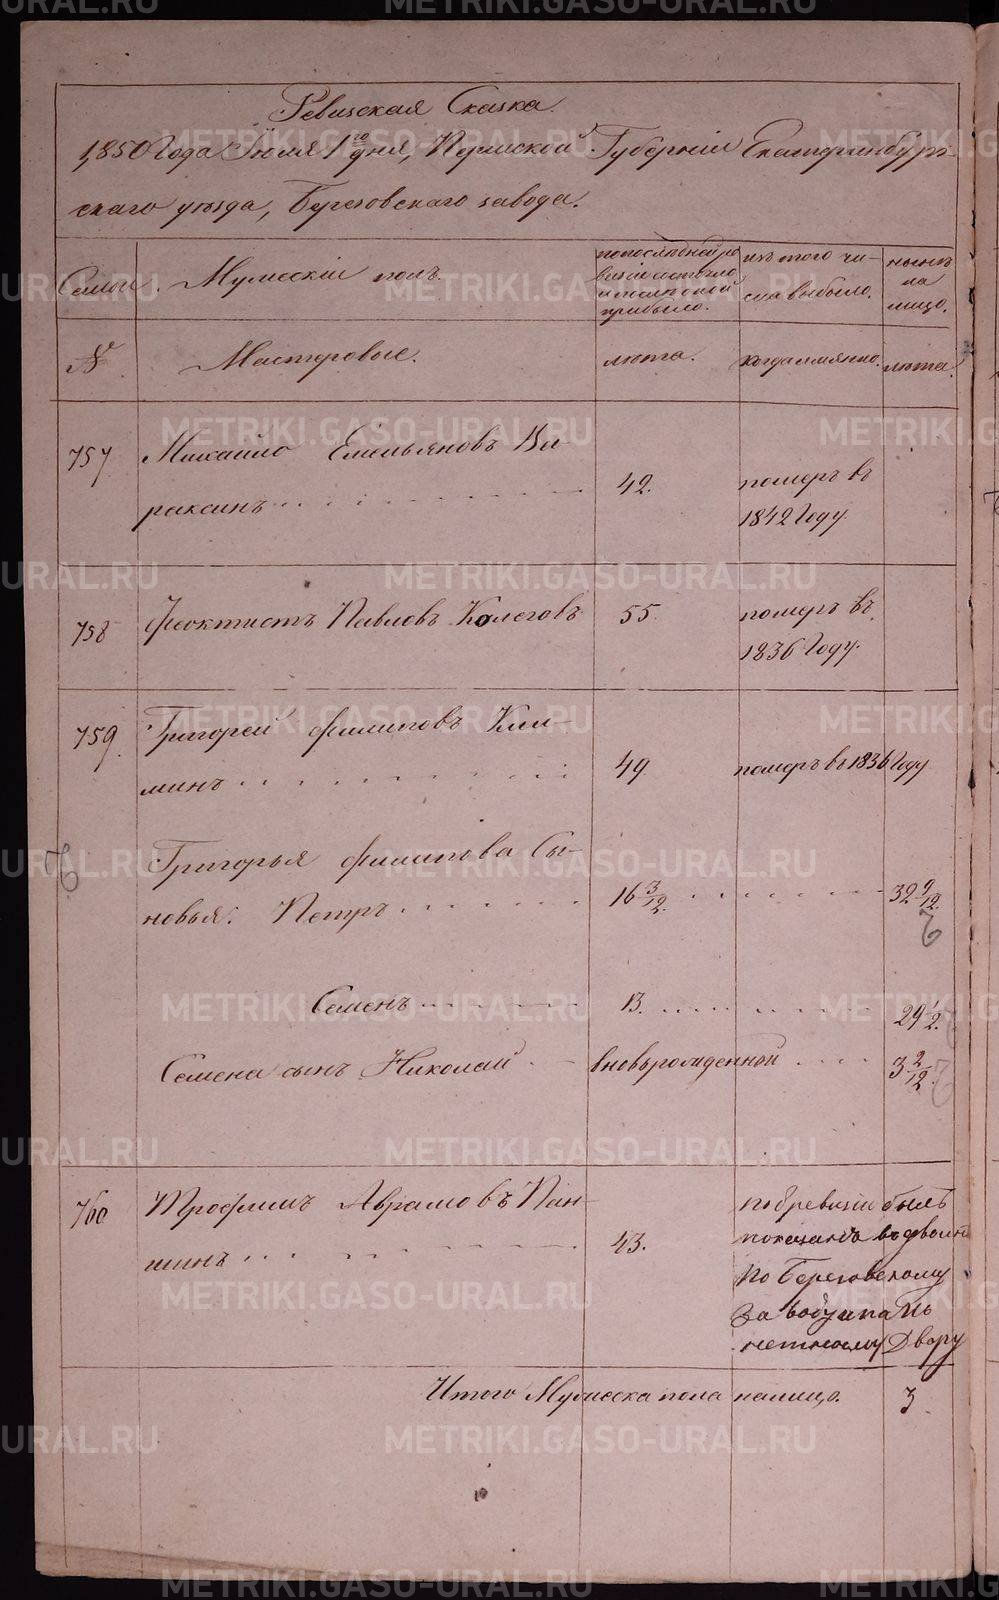 Ревизская Сказка.
1,850 Года Июля 1го дня, Пермской Губернiи Екатеринбург-
скаго уезда, Березовскаго завода.
Семьи. Мужескiй полъ. по последней ре- изъ того чи- ныне
визiи состояло сла выбыло. на
и после оной лицо.
прибыло.
№ Мастеровые. лета. когда именно. лета.
757 Михайло Емельяновъ Ва-
раксинъ 42. померъ въ
1842 Году.
758 Феоктистъ Павловъ Колеговъ 55. померъ въ
1836 Году.
759. Григорей Филиповъ Кли-
минъ 49 померъ въ 1836 Году
Григорья Филипова Сы-
новья: Петръ 16 3/12. 32 9/12.
Семенъ 13. 29 1/2.
Семена сынъ Николай вновьрожденной 3 2/12.
760 Трофимъ Аврамовъ Пан-
шинъ 43. по 8 ревизiи былъ
показанъ вдвойне
по Березовскому
заводу и по Мо-
нетному Двору
Итого Мужеска пола налицо. 3.
METRIKI.GASO-URAL.RU